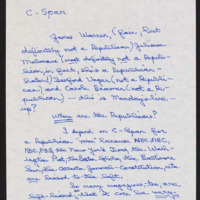 C-Span
James Warren, (fair, but
definitely not a Republican) Julianne
Malveaux (most definitely not a Repub-
lican, in fact, she's a Republican-
hater!) Sanford Ungar (not a Republi-
can) and Carole Brown (not a Re-
publican) - this is
up?
Where are the Republicans?
I depend on C-Span for
a Republican voice because NBC, ABC,
CBS, PBS, the New York Times, the Wash-
ington Post, the Boston Globe, the Baltimore
Sun, the Atlanta Journal-Constitution, etc
are biased to the left.
So many magazines too, are
left-biased that it can be very